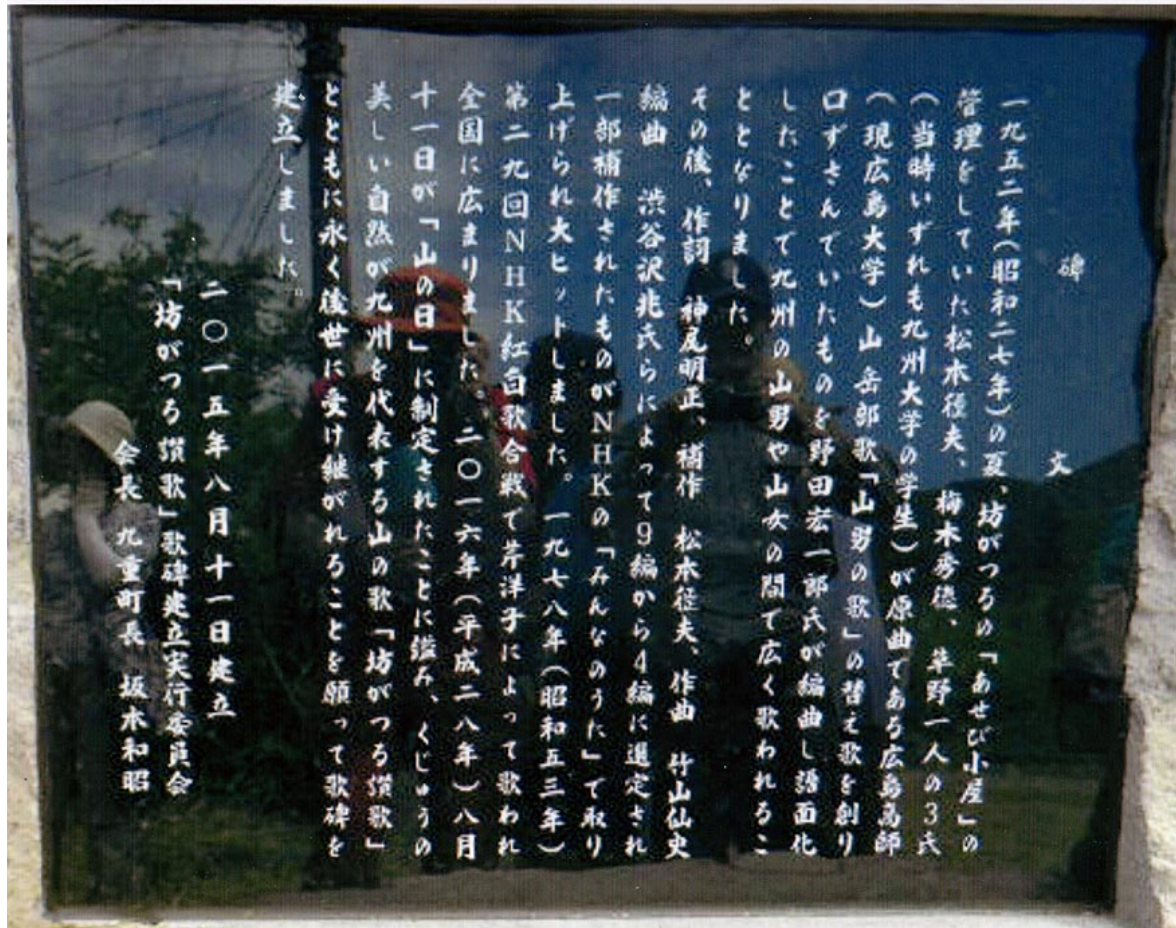 碑文
一九五二年(昭和二七年)の夏、坊がつるの「あせび小屋」の
管理をしていた松木径夫、梅木秀徳、草野一人の3氏
(当時いずれも九州大学の学生)が原曲である広島高師
(現広島大学)山岳部歌「山男の歌」の替え歌を創り
口ずさんでいたものを野田宏一郎氏が編曲し譜面化
したことで九州の山男や山女の間で広く歌われるこ
ととなりました。
その後、作詞 神尾明正、補作 松本径夫、作曲 竹山仙史
編曲 渋谷沢兆氏らによって9編から4編に選定され
一部補作されたものがNHKの「みんなのうた」で取り
上げられ大ヒットしました。一九七八年(昭和五三年)
第二九回NHK紅白歌合戦で芹洋子によって歌われ
全国に広まりました。二〇一六年(平成二八年)八月
十一日が「山の日」に制定されたことに鑑み、くじゅうの
美しい自然が九州を代表する山の歌「坊がつる讃歌」
とともに永く後世に受け継がれることを願って歌碑を
建立しました。
二〇一五年八月十一日建立
「坊がつる讃歌」歌碑建立実行委員会
会長 九重町長 坂本和昭